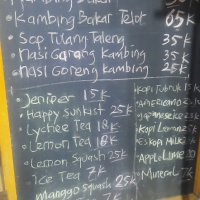 Kambing Bakar
• Kambing Bakar Telor 65K
• Sop Tulang Taleng 35K
• Nasi Goreng Kambing 35K
• Nasi Goreng Kambing 25K
• Jeniper 15K
• Happy Sunkist 25K
• Lychee Tea 18K
• Lemon Tea 18K
• Lemon Squash 25K
• Ice Tea 7K
Mango Squash 25K
7K
Kopi Tubruk
Americano
Japanese Ice
Kopi Lemon
Es Kopi Milk
Apple Lime
Mineral 7K